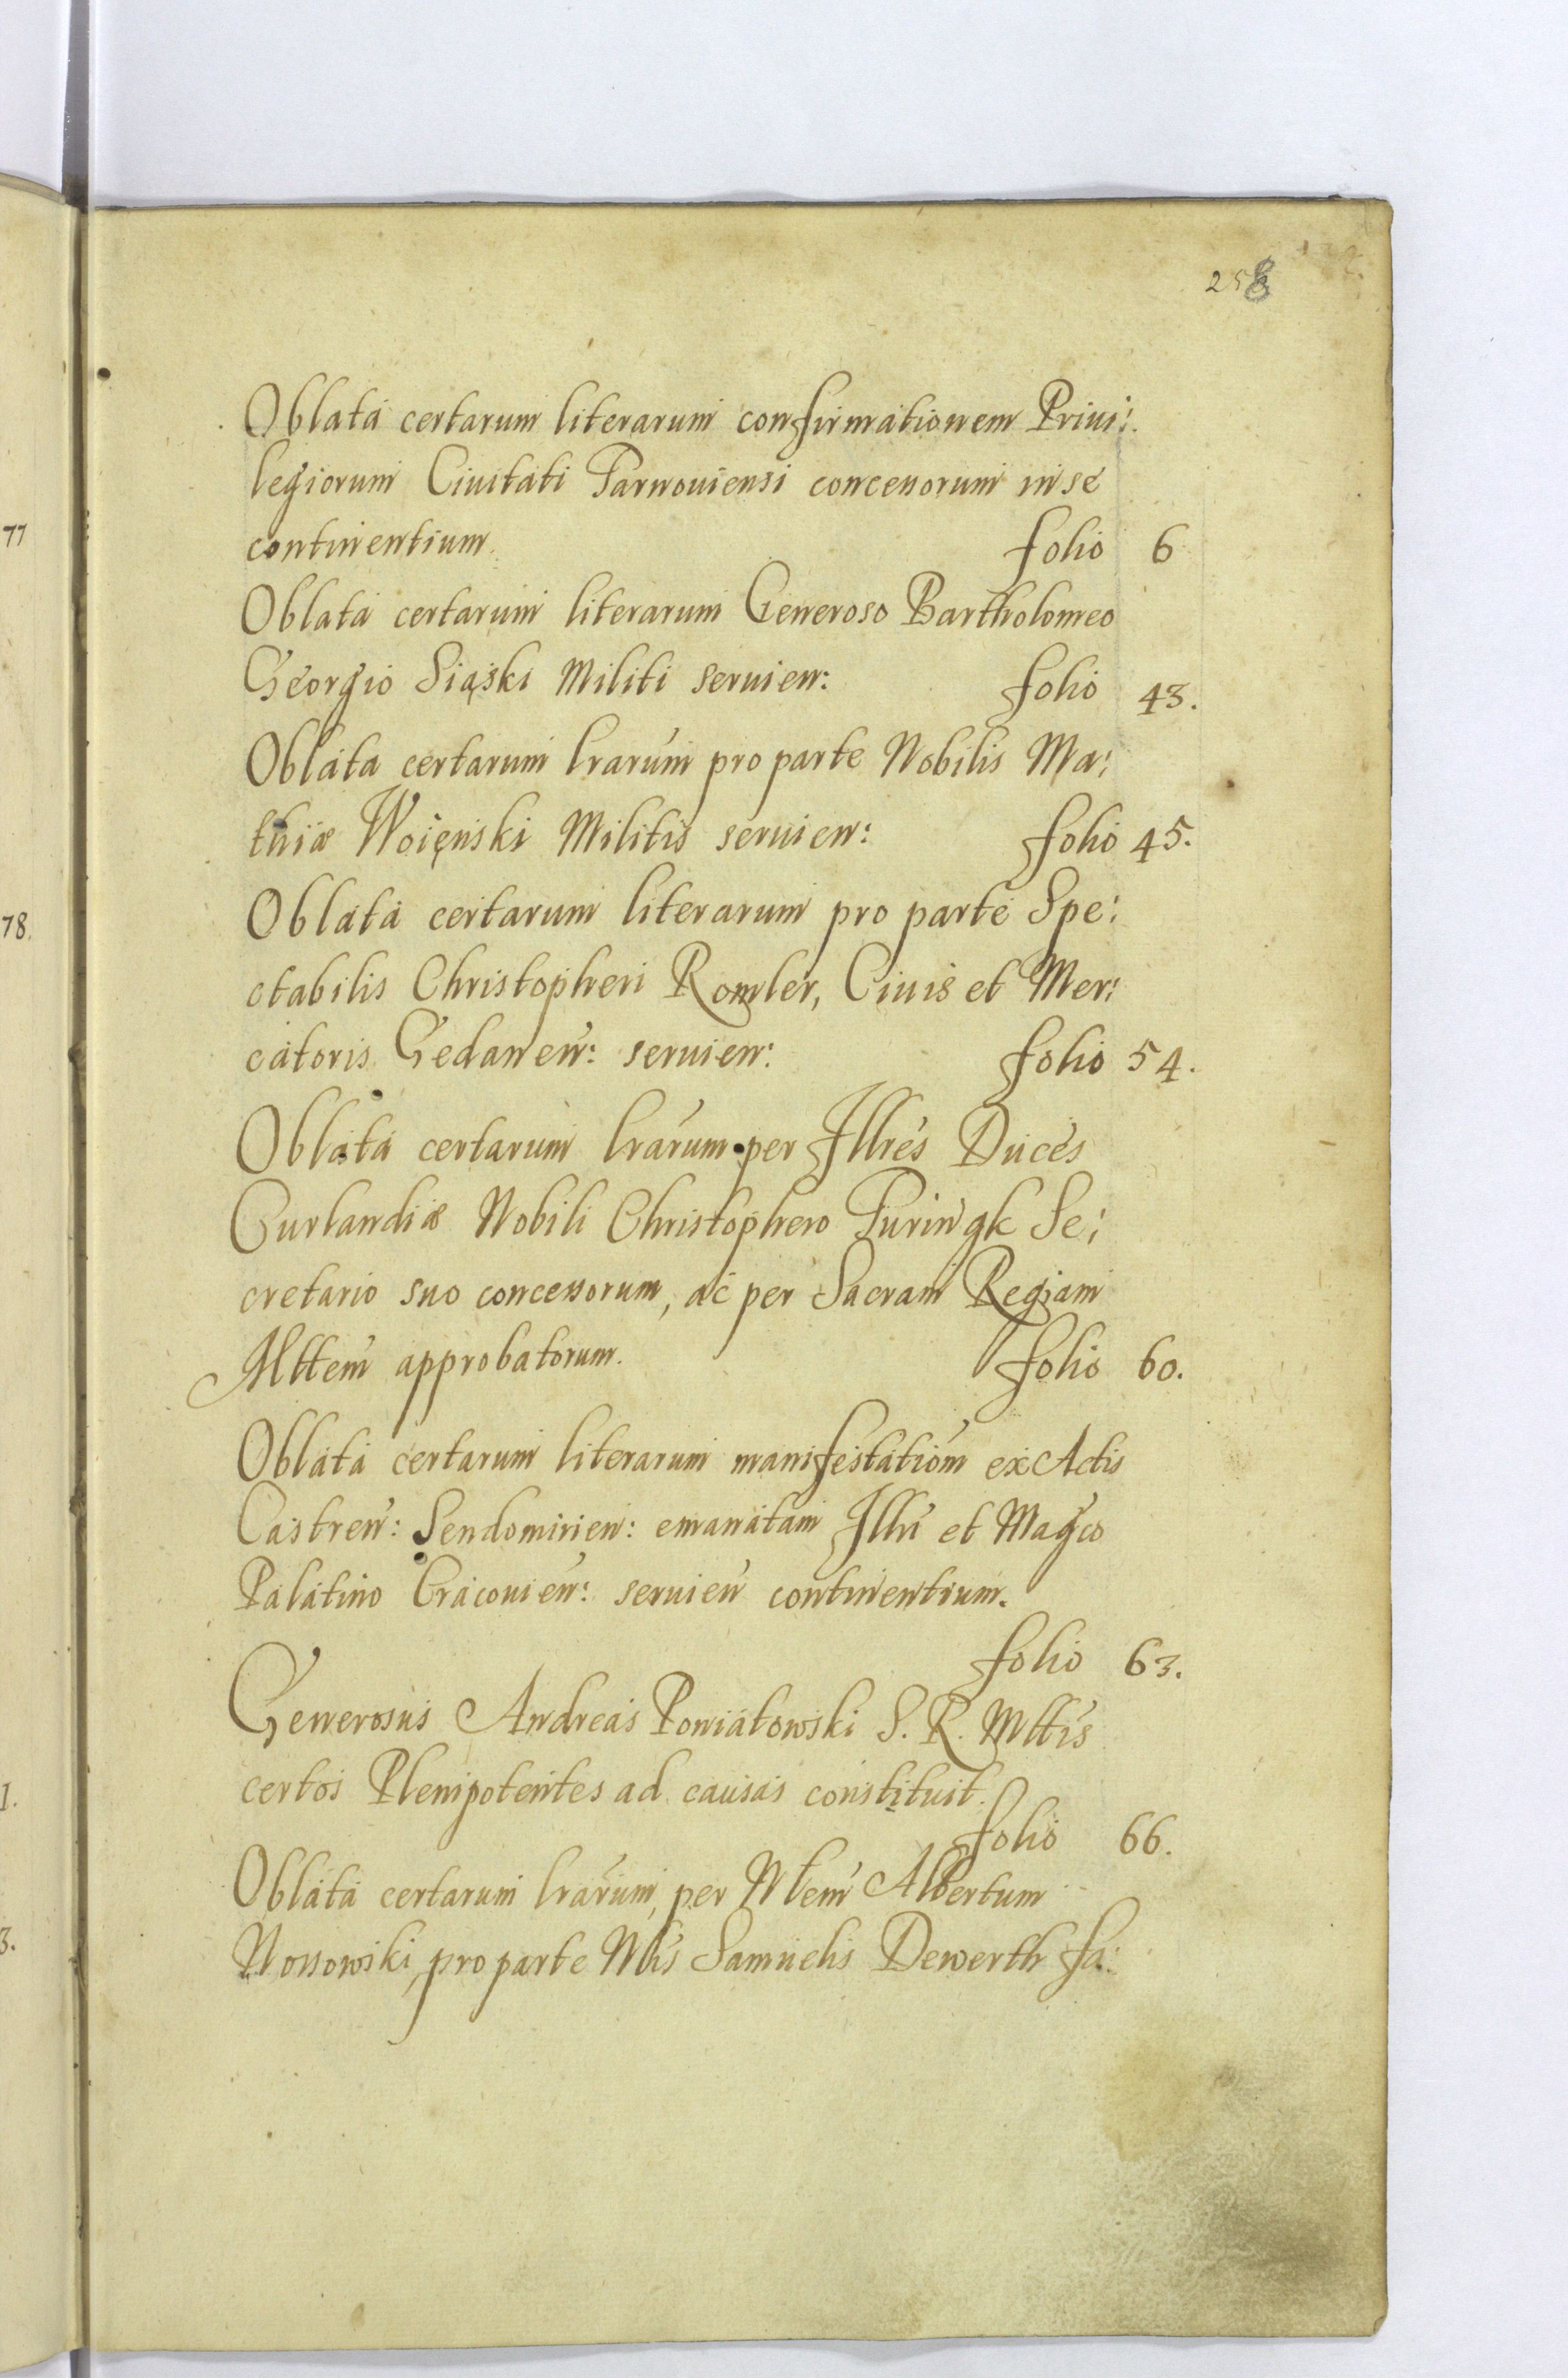 258
Oblata certarum literarum confirmationem Priui:
legiorum Ciuitati Parnouiensi concessorum in se
continentium. folio 6
Oblata certarum literarum Generoso Bartholomeo
Georgio Siąski Militi seruien: folio 43.
Oblata certarum lrarum pro parte Nobilis Ma:
thiæ Woięnski Militis seruien: folio 45.
Oblata certarum literarum pro parte Spe:
ctabilis Christopheri Romler, Ciuis et Mer:
catoris Gedanen: seruien: folio 54.
Oblata certarum lrarum per Illres Duces
Curlandiæ Nobili Christophero Turingk Se:
cretario suo concessorum, ac per Sacram Regiam
Mttem approbatorum. folio 60.
Oblata certarum literarum manifestationem ex Actis
Castren: Sendomirien: emanatam Illri et Magco
Palatino Cracouien: seruien continentium.
folio 63.
Generosus Andreas Poniatowski S. R. Mttis
certos Plenipotentes ad causas constituit.
folio 66.
Oblata certarum lrarum, per Nlem Albertum
Nossowski, pro parte Nlis Samuelis Dewerth fa:
77
78.
1.
3.